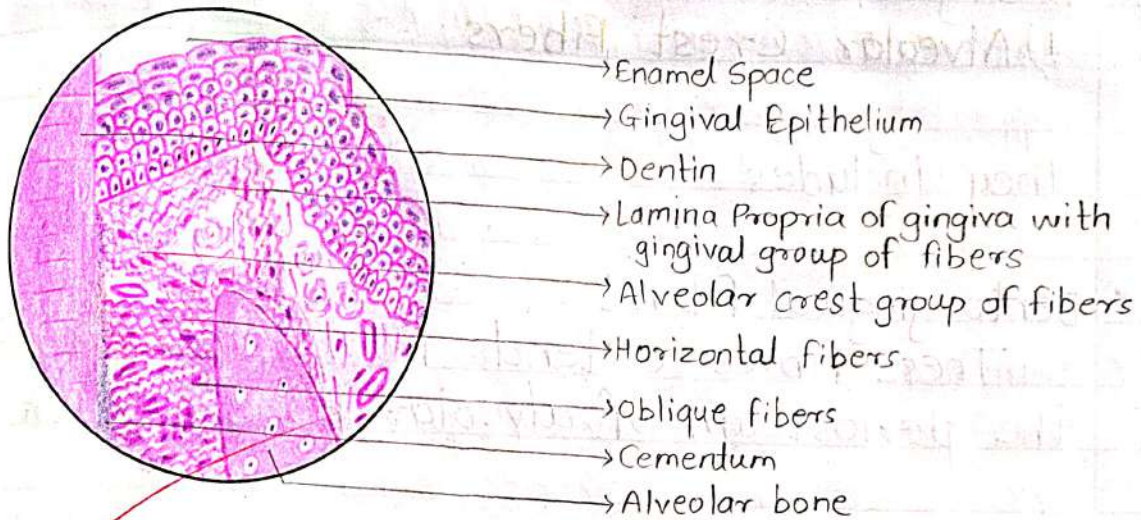 1) Alveolar crest Fibers:
Enamel Space
Gingival Epithelium
Dentin
Lamina Propria of gingiva with
gingival group of fibers
Alveolar crest group of fibers
Horizontal fibers
Oblique fibers
Cementum
Alveolar bone